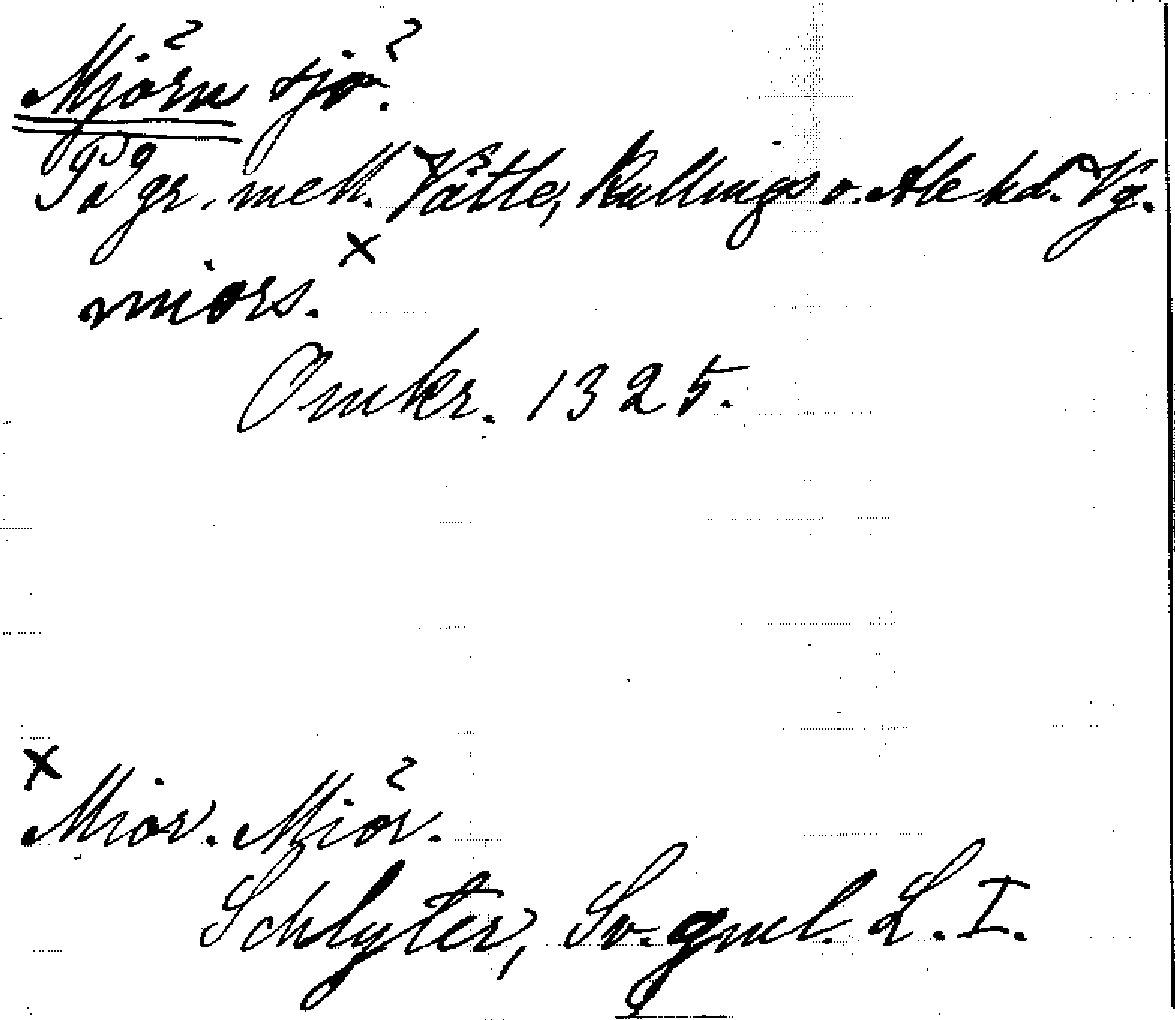 Mjörn sjö.
På gr. mell. Vättle, Kullings o. Ale hd. Vg.
miors. x
Omkr. 1325.
x Mior. Miör.
Schlyter, Sv. gml. L. I.